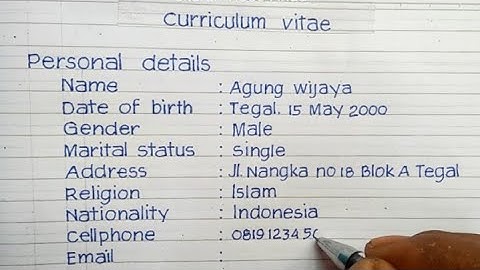 Curriculum vitae
Personal details
Name : Agung wijaya
Date of birth : Tegal. 15 May 2000
Gender : Male
Marital status : Single
Address : Jl. Nangka no 18 Blok A Tegal
Religion : Islam
Nationality : Indonesia
Cellphone : 0819.1234.50
Email :